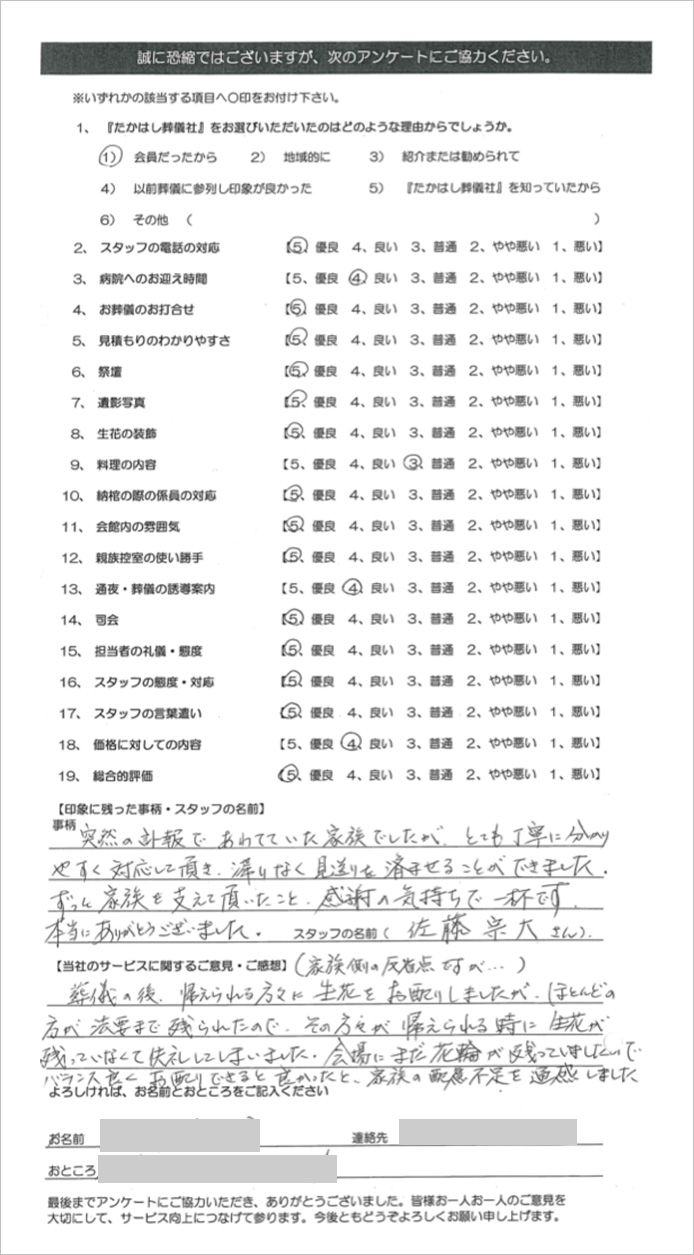 誠に恐縮ではございますが、次のアンケートにご協力ください。
※いずれかの該当する項目へ○印をお付け下さい。
1、『たかはし葬儀社』をお選びいただいたのはどのような理由からでしょうか。
1） 会員だったから 2） 地域的に 3） 紹介または勧められて
4） 以前葬儀に参列し印象が良かった 5） 『たかはし葬儀社』を知っていたから
6） その他 （ ）
2、スタッフの電話の対応 【5、優良 4、良い 3、普通 2、やや悪い 1、悪い】
3、病院へのお迎え時間 【5、優良 4、良い 3、普通 2、やや悪い 1、悪い】
4、お葬儀のお打合せ 【5、優良 4、良い 3、普通 2、やや悪い 1、悪い】
5、見積もりのわかりやすさ 【5、優良 4、良い 3、普通 2、やや悪い 1、悪い】
6、祭壇 【5、優良 4、良い 3、普通 2、やや悪い 1、悪い】
7、遺影写真 【5、優良 4、良い 3、普通 2、やや悪い 1、悪い】
8、生花の装飾 【5、優良 4、良い 3、普通 2、やや悪い 1、悪い】
9、料理の内容 【5、優良 4、良い 3、普通 2、やや悪い 1、悪い】
10、納棺の際の係員の対応 【5、優良 4、良い 3、普通 2、やや悪い 1、悪い】
11、会館内の雰囲気 【5、優良 4、良い 3、普通 2、やや悪い 1、悪い】
12、親族控室の使い勝手 【5、優良 4、良い 3、普通 2、やや悪い 1、悪い】
13、通夜・葬儀の誘導案内 【5、優良 4、良い 3、普通 2、やや悪い 1、悪い】
14、司会 【5、優良 4、良い 3、普通 2、やや悪い 1、悪い】
15、担当者の礼儀・態度 【5、優良 4、良い 3、普通 2、やや悪い 1、悪い】
16、スタッフの態度・対応 【5、優良 4、良い 3、普通 2、やや悪い 1、悪い】
17、スタッフの言葉遣い 【5、優良 4、良い 3、普通 2、やや悪い 1、悪い】
18、価格に対しての内容 【5、優良 4、良い 3、普通 2、やや悪い 1、悪い】
19、総合的評価 【5、優良 4、良い 3、普通 2、やや悪い 1、悪い】
【印象に残った事柄・スタッフの名前】
事柄 突然の訃報であわてていた家族でしたが、とても丁寧に分かり
やすく対応して頂き、滞りなく見送りを済ませることができました。
ずっと家族を支えて頂いたこと、感謝の気持ちで一杯です。
本当にありがとうございました。 スタッフの名前（ 佐藤宗大さん）.
【当社のサービスに関するご意見・ご感想】（家族側の反省点ですが…）
葬儀の後、帰えられる方々に生花をお配りしましたが、ほとんどの
方が法要まで残られたので、その方々が帰えられる時に生花が
残っていなくて失礼してしまいました。会場にまだ花輪が残っていましたので
バランス良くお配りできると良かったと、家族の配慮不足を痛感しました
よろしければ、お名前とおところをご記入ください
お名前 連絡先
おところ
最後までアンケートにご協力いただき、ありがとうございました。皆様お一人お一人のご意見を
大切にして、サービス向上につなげて参ります。今後ともどうぞよろしくお願い申し上げます。